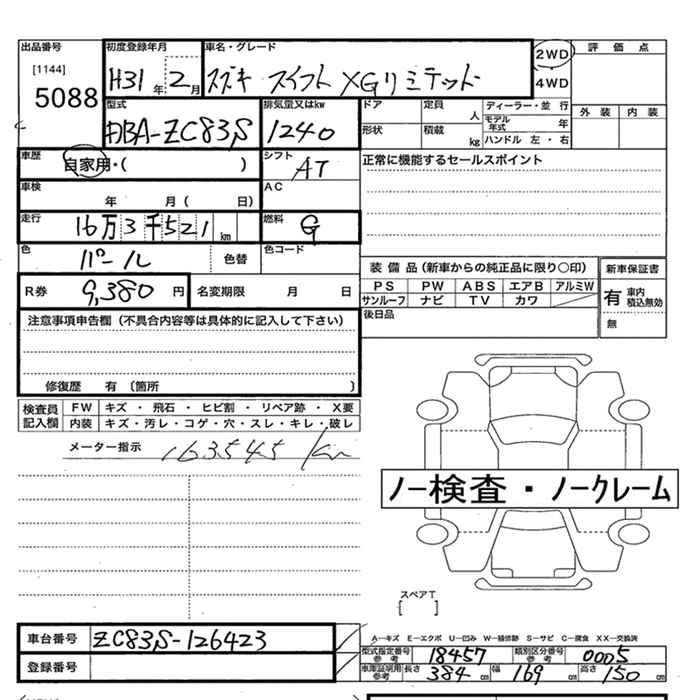 出品番号 初度登録年月 車名・グレード 2WD 評価点
[1144] 5088 H31年 2月 スズキ スイフト XGリミテッド 4WD 外装 内装
型式 排気量又はkw ドア 定員 人 ディーラー・並行
DBA-ZC83S 1240 形状 積載 kg モデル年式 年
ハンドル 左・右
車歴 自家用・( ) シフト AT 正常に機能するセールスポイント
車検 年 月( 日) AC
走行 16万3千521km 燃料 G
色 パール 色替 色コード
装備品(新車からの純正品に限り○印) 新車保証書
R券 9,380円 名変期限 月 日 PS PW ABS エアB アルミW 有 車内積込無効
サンルーフ ナビ TV カワ
注意事項申告欄(不具合内容等は具体的に記入して下さい) 後日品 無
修復歴 有〔箇所 〕
検査員記入欄 FW キズ・飛石・ヒビ割・リペア跡・X要
内装 キズ・汚レ・コゲ・穴・スレ・キレ・破レ
メーター指示 163545 km
ノー検査・ノークレーム
スペアT
[ ]
車台番号 ZC83S-126423 A-キズ E-エクボ U-凹み W-補修跡 S-サビ C-腐食 XX-交換済
型式指定番号 参考 18457 類別区分番号 参考 0005
登録番号 車庫証明用 参考 長さ 384cm 幅 169cm 高さ 150cm